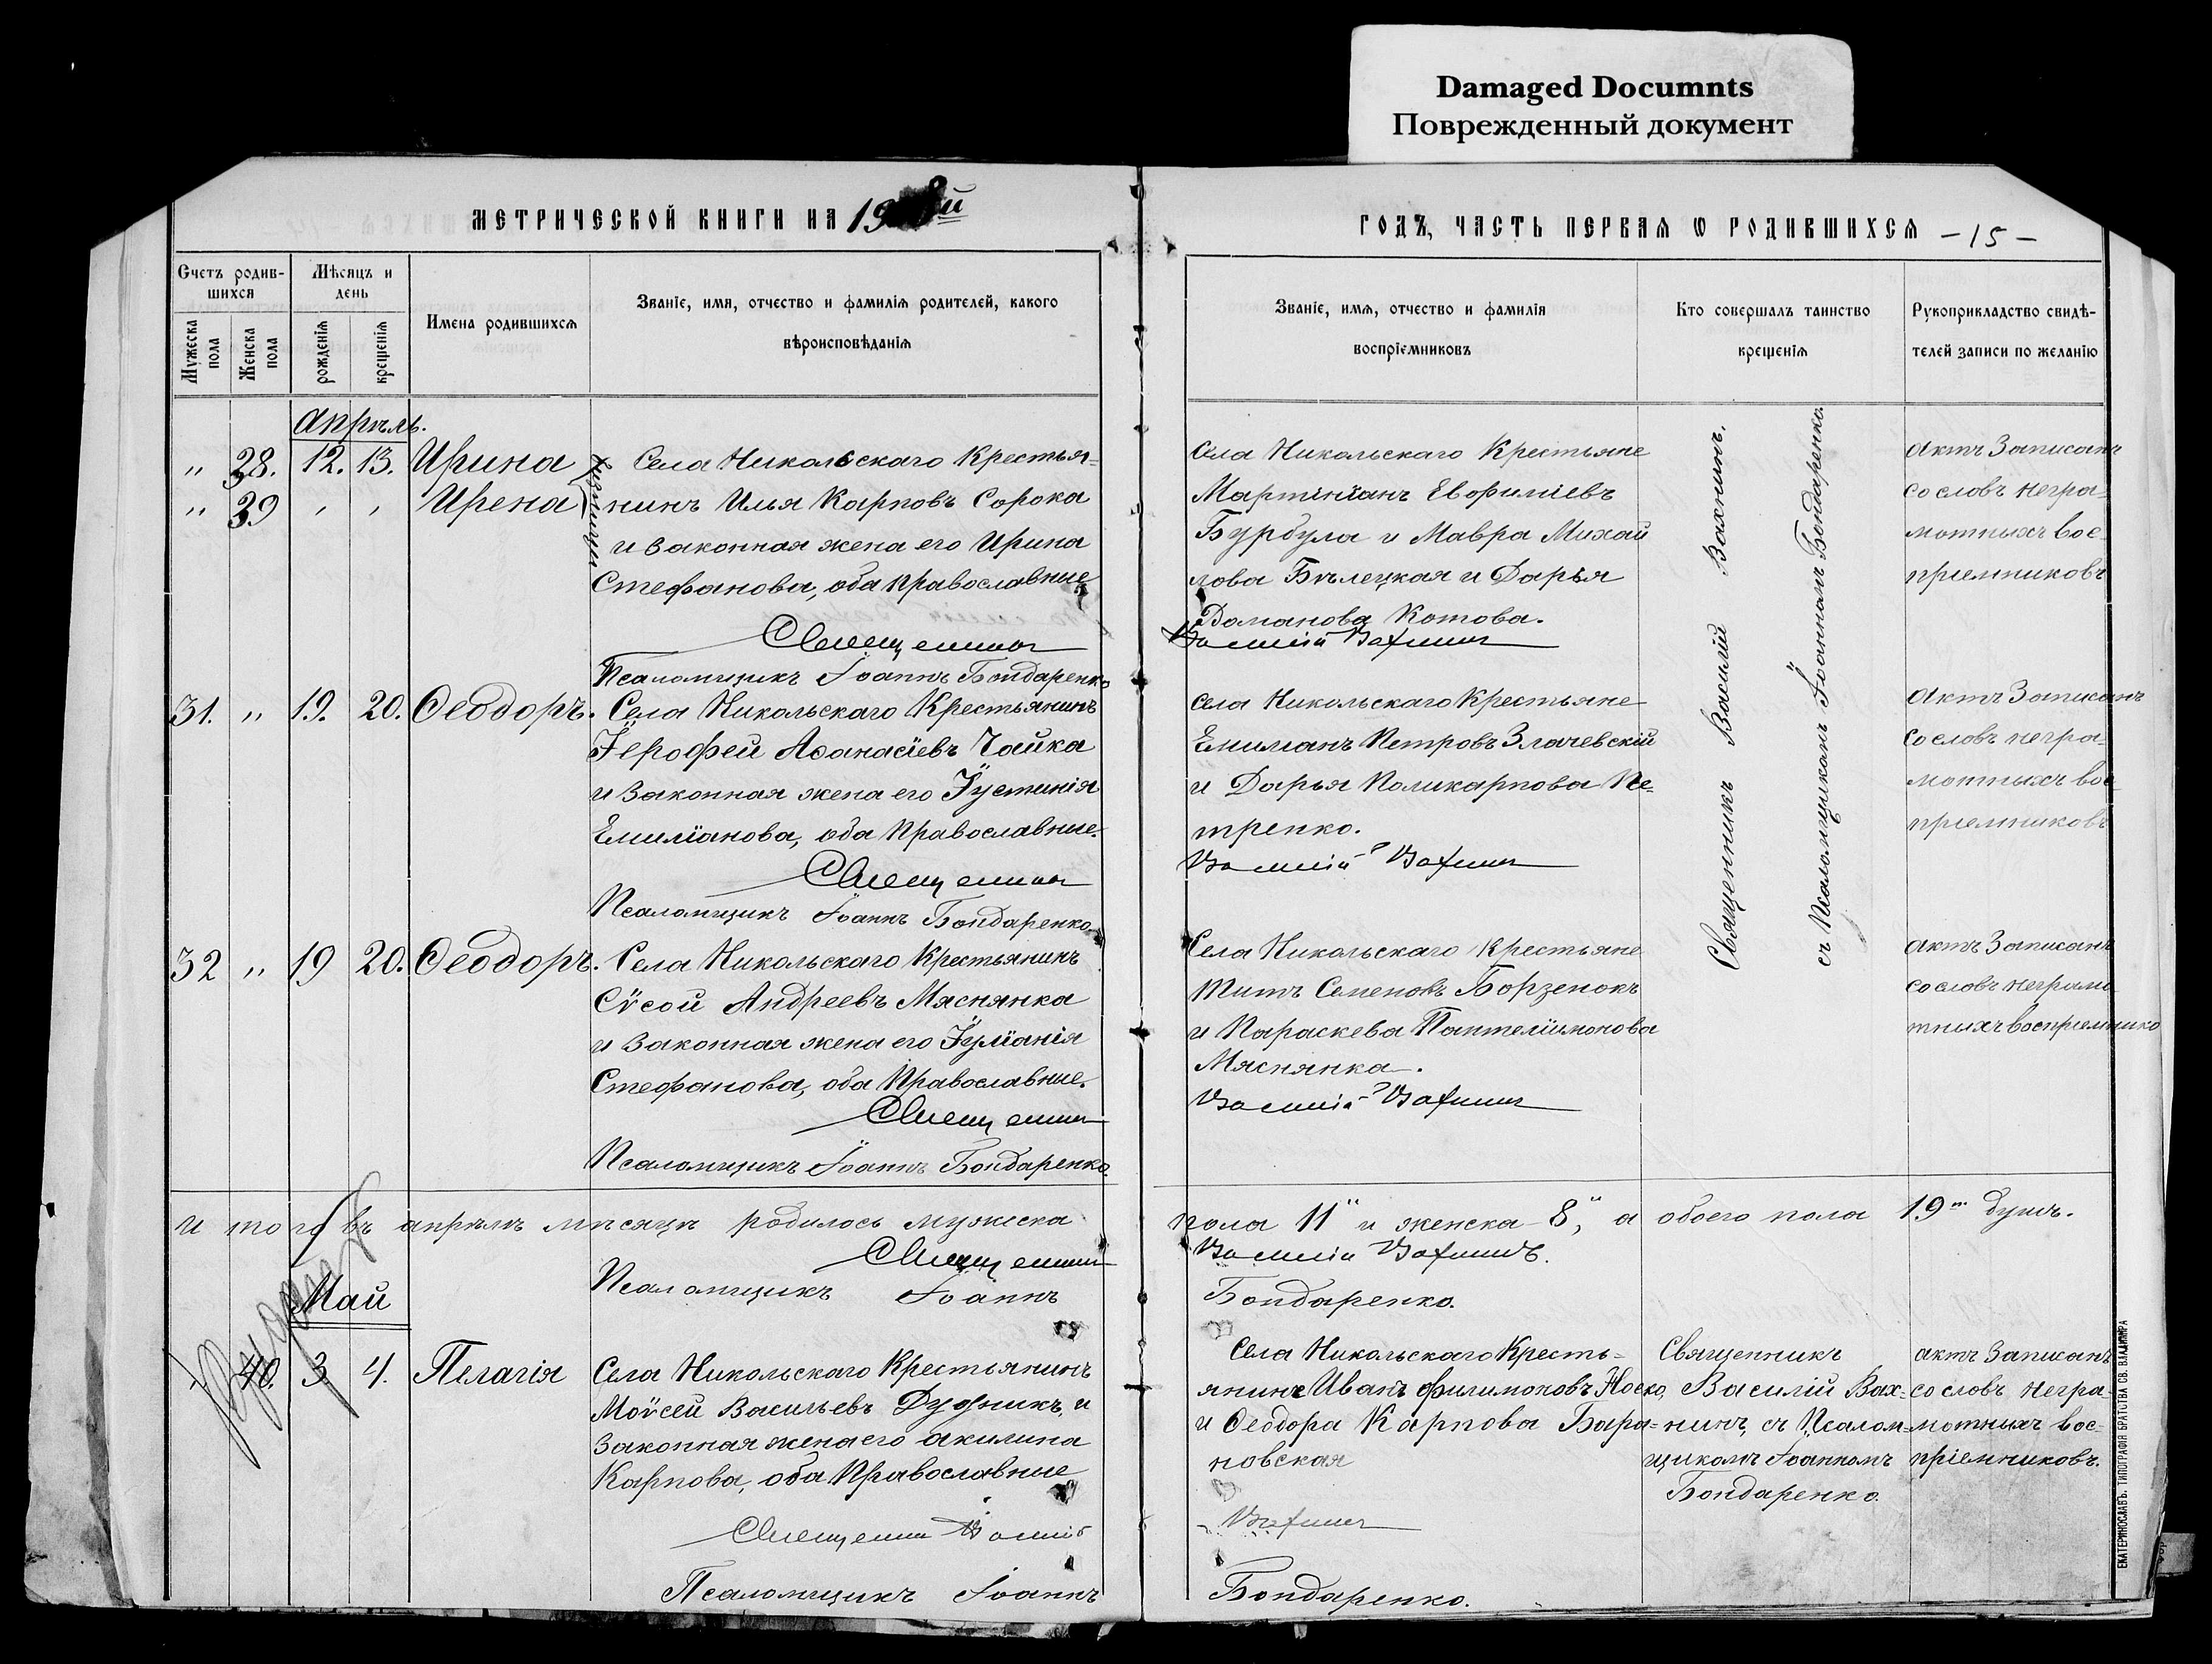 Damaged Documnts
Поврежденный документ
МЕТРИЧЕСКОЙ КНИГИ НА 19
ГОДЪ, ЧАСТЬ ПЕРВАЯ Ѡ РОДИВШИХСЯ -15-
Счетъ родив-
шихся
Мужеска
пола
Женска
пола
Мѣсяцъ и
день
рожденія
крещенія
Имена родившихся
Званіе, имя, отчество и фамилія родителей, какого
вѣроисповѣданія
Званіе, имя, отчество и фамилія
воспріемниковъ
Кто совершалъ таинство
крещенія
Рукоприкладство свидѣ-
телей записи по желанію
Апрѣль.
" 28. 12. 13. Ирина
" 39 " " Ирена
близницы
Села Никольскаго Крестья-
нинъ Илья Карповъ Сорока
и законная жена его Ирина
Стефанова, оба православные
Священникъ
Псаломщикъ Іоаннъ Бондаренко
Села Никольскаго Крестьяне
Мартініанъ Евфиміевъ
Бурбула и Мавра Михай
лова Бѣлецкая и Дарья
Доманова Котова.
Василій Вахнинъ
Священникъ Василій Вахнинъ,
съ Псаломщикомъ Іоанномъ Бондаренко.
Актъ Записанъ
со словъ негра-
мотныхъ вос-
пріемниковъ
31. " 19. 20. Ѳеодоръ.
Села Никольскаго Крестьянинъ
Іерофей Аѳанасіевъ Чайка
и законная жена его Іустинія
Емиліанова, оба Православные.
Священникъ
Псаломщикъ Іоаннъ Бондаренко
Села Никольскаго Крестьяне
Емиліанъ Петровъ Злачевскій
и Дарья Поликарпова Пе-
тренко.
Василій Вахнинъ
Актъ Записанъ
со словъ негра-
мотныхъ вос-
пріемниковъ
32 " 19 20. Ѳеодоръ.
Села Никольскаго Крестьянинъ
Сѵсой Андреевъ Маснянка
и законная жена его Іуліанія
Стефанова, оба Православные.
Священникъ
Псаломщикъ Іоаннъ Бондаренко.
Села Никольскаго Крестьяне
Титъ Семеновъ Борзенокъ
и Параскева Пантелиімонова
Маснянка.
Василій Вахнинъ
Актъ Записанъ
со словъ неграмо
тныхъ воспріемнико
и того въ апрѣлѣ мѣсяцѣ родилось мужеска
пола 11" и женска - 8", а обоего пола 19ть душъ.
Священникъ
Василій Вахнинъ.
Псаломщикъ Іоаннъ
Бондаренко.
Май
40. 3. 4. Пелагія
Села Никольскаго Крестьянинъ
Моѵсей Васильевъ Дудникъ, и
законная жена его Акилина
Карпова, оба Православные
Священникъ Василій
Псаломщикъ Іоаннъ
Села Никольскаго Кресть-
янинъ Иванъ Филимоновъ Носко,
и Ѳеодора Карпова Бара-
новская
Вахнинъ
Бондаренко.
Священникъ
Василій Вах-
нинъ, съ Псалом-
щикомъ Іоанномъ
Бондаренко.
актъ записанъ
со словъ негра-
мотныхъ вос-
пріемниковъ.
ЕКАТЕРИНОСЛАВЪ. ТИПОГРАФІЯ БРАТСТВА СВ. ВЛАДИМІРА